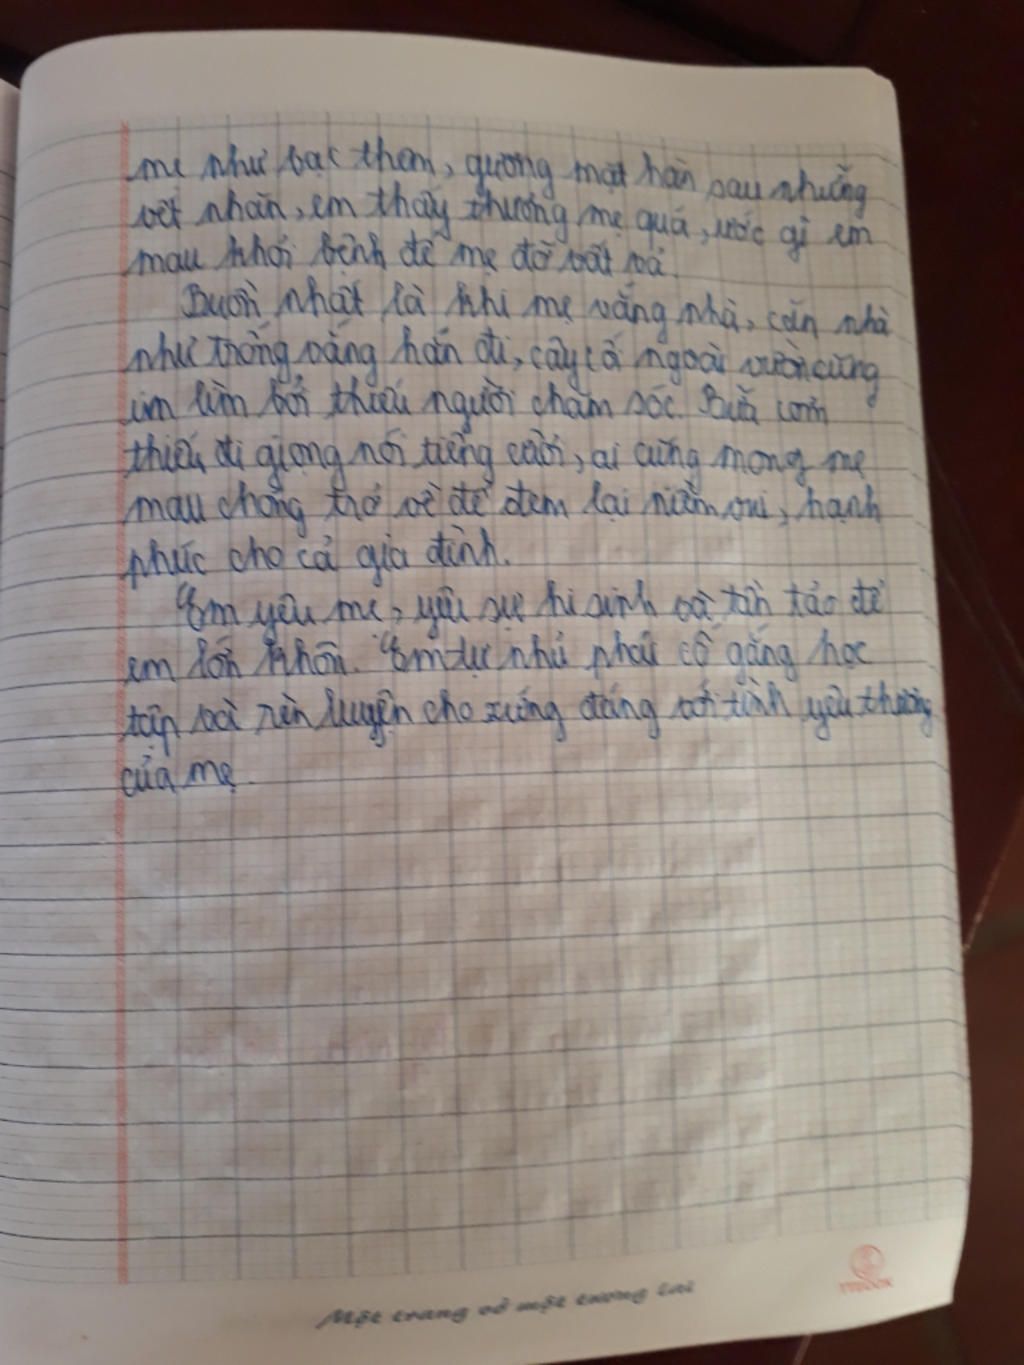 mẹ như bạc thêm, gương mặt hằn sau những
vết nhăn, em thấy thương mẹ quá, ước gì em
mau khỏi bệnh để mẹ đỡ vất vả.
Buồn nhất là khi mẹ vắng nhà, căn nhà
như trống vắng hẳn đi, cây cả ngoài vườn cũng
im lìm bởi thiếu người chăm sóc. Bữa cơm
thiếu đi giọng nói tiếng cười, ai cũng mong mẹ
mau chóng trở về để đem lại niềm vui, hạnh
phúc cho cả gia đình.
Em yêu mẹ, yêu sự hi sinh và tần tảo để
em lớn khôn. Em tự nhủ phải cố gắng học
tập và rèn luyện cho xứng đáng với tình yêu thương
của mẹ.
Một trang vở một tương lai